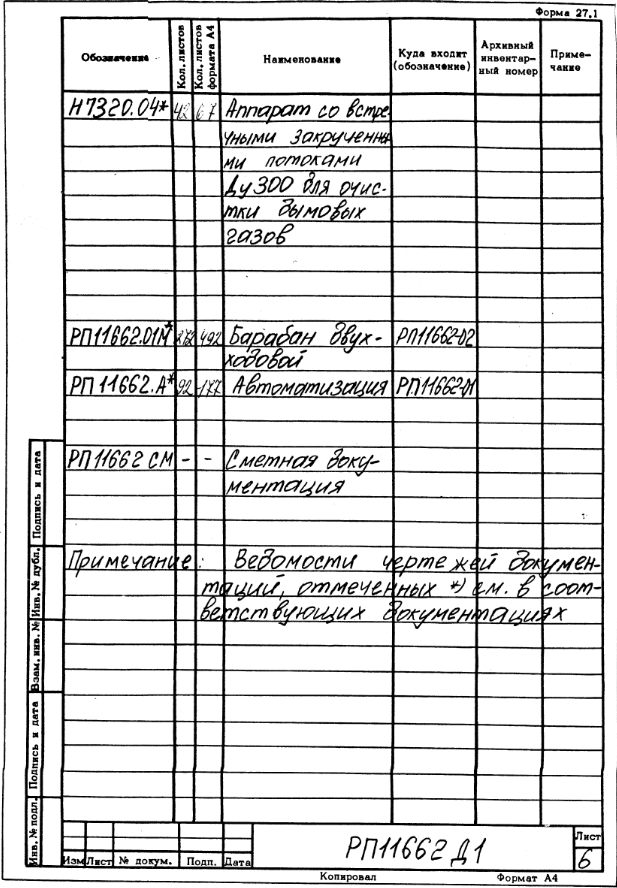 Форма 27.1
Обозначение Кол. листов Кол. листов формата А4 Наименование Куда входит (обозначение) Архивный инвентарный номер Примечание
Н7320.04* 42 67 Аппарат со встре-
чными закрученны
ми потоками
Ду300 для очис-
тки дымовых
газов
РП11662.01М* 272 492 Барабан двух- РП11662-02
ходовой
РП 11662.А* 92 177 Автоматизация РП11662-01
РП 11662 СМ - - Сметная доку-
ментация
Примечание: Ведомости чертежей докумен-
таций, отмеченных *) см. в соот-
ветствующих документациях
Инв. № подл. Подпись и дата Взам. инв. № Инв. № дубл. Подпись и дата
РП11662 Д1
Лист
6
Изм Лист № докум. Подп. Дата
Копировал Формат А4